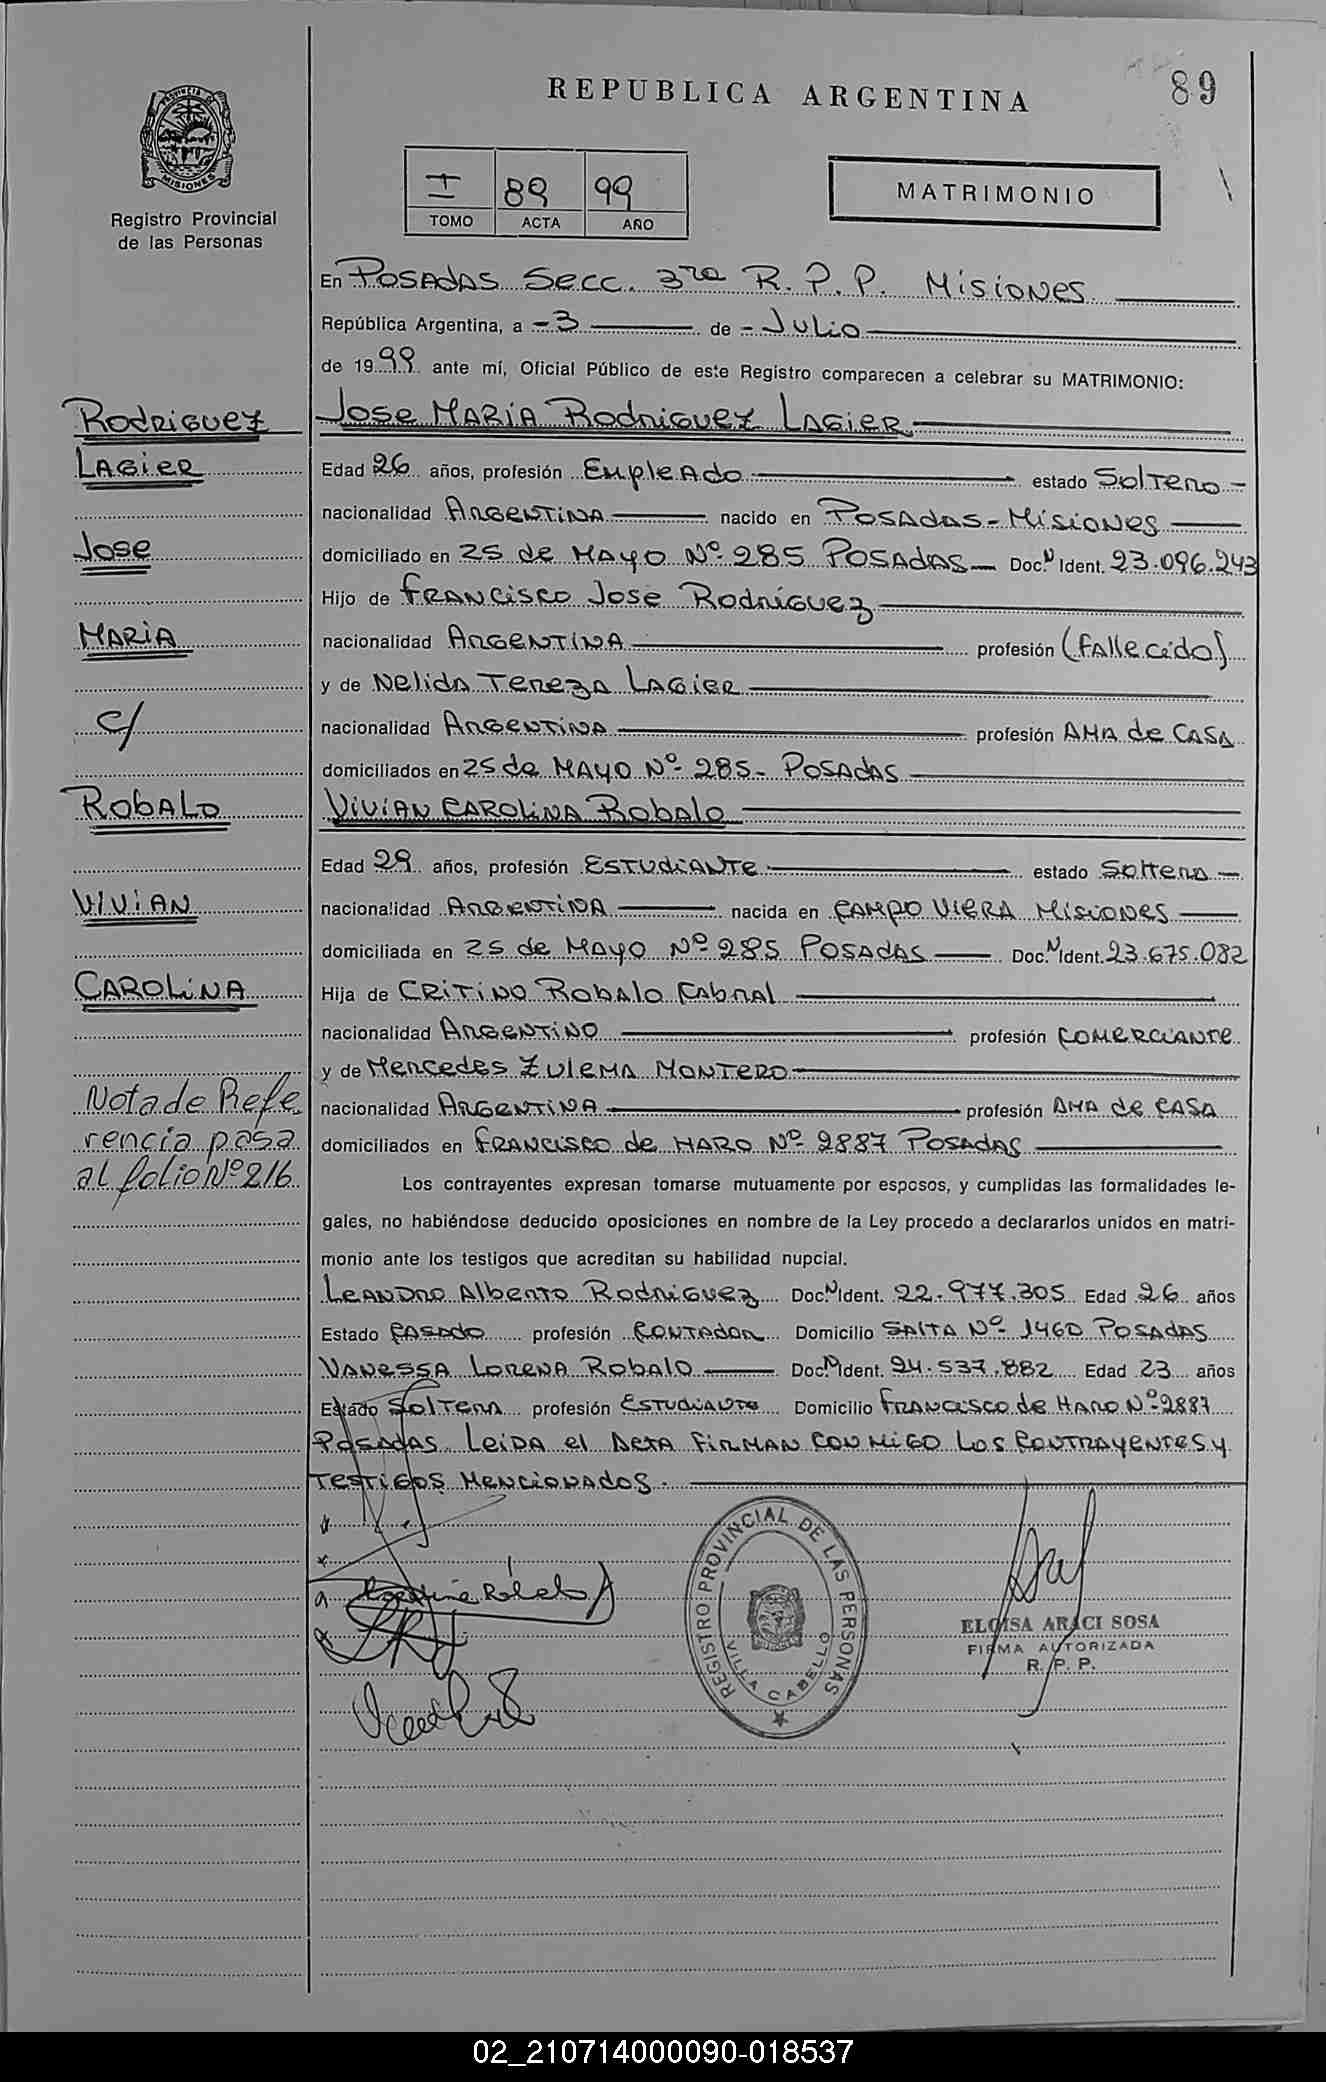 89
REPUBLICA ARGENTINA
PROVINCIA DE
MISIONES
Registro Provincial
de las Personas
I 89 99
TOMO ACTA AÑO
MATRIMONIO
En Posadas Secc. 3ra R. P. P. Misiones
República Argentina, a - 3 de - Julio
de 1999 ante mí, Oficial Público de este Registro comparecen a celebrar su MATRIMONIO:
Rodriguez
Lagier
Jose
Maria
c/
Robalo
Vivian
Carolina
Nota de Refe
rencia pasa
al folio Nº 216
Jose Maria Rodriguez Lagier
Edad 26 años, profesión Empleado estado Soltero -
nacionalidad Argentina nacido en Posadas - Misiones
domiciliado en 25 de Mayo Nº 285 Posadas - Doc. N Ident. 23.096.243
Hijo de Francisco Jose Rodriguez
nacionalidad Argentina profesión (fallecido)
y de Nelida Tereza Lagier
nacionalidad Argentina profesión Ama de Casa
domiciliados en 25 de Mayo Nº 285 - Posadas
Vivian Carolina Robalo
Edad 29 años, profesión Estudiante estado Soltera -
nacionalidad Argentina nacida en Campo Viera Misiones
domiciliada en 25 de Mayo Nº 285 Posadas Doc. N Ident. 23.675.082
Hija de Critino Robalo Cabral
nacionalidad Argentino profesión Comerciante
y de Mercedes Zulema Montero
nacionalidad Argentina profesión Ama de Casa
domiciliados en Francisco de Haro Nº 2887 Posadas
Los contrayentes expresan tomarse mutuamente por esposos, y cumplidas las formalidades le-
gales, no habiéndose deducido oposiciones en nombre de la Ley procedo a declararlos unidos en matri-
monio ante los testigos que acreditan su habilidad nupcial.
Leandro Alberto Rodriguez Doc. N Ident. 22.977.305 Edad 26 años
Estado Casado profesión Contador Domicilio Salta Nº 1460 Posadas
Vanessa Lorena Robalo Doc. N Ident. 24.537.882 Edad 23 años
Estado Soltera profesión Estudiante Domicilio Francisco de Haro Nº 2887
Posadas. Leida el Acta firman conmigo los contrayentes y
testigos mencionados.
Carolina Robalo
REGISTRO PROVINCIAL DE LAS PERSONAS
VILLA CABELLO
ELOISA ARACI SOSA
FIRMA AUTORIZADA
R. P. P.
02_210714000090-018537